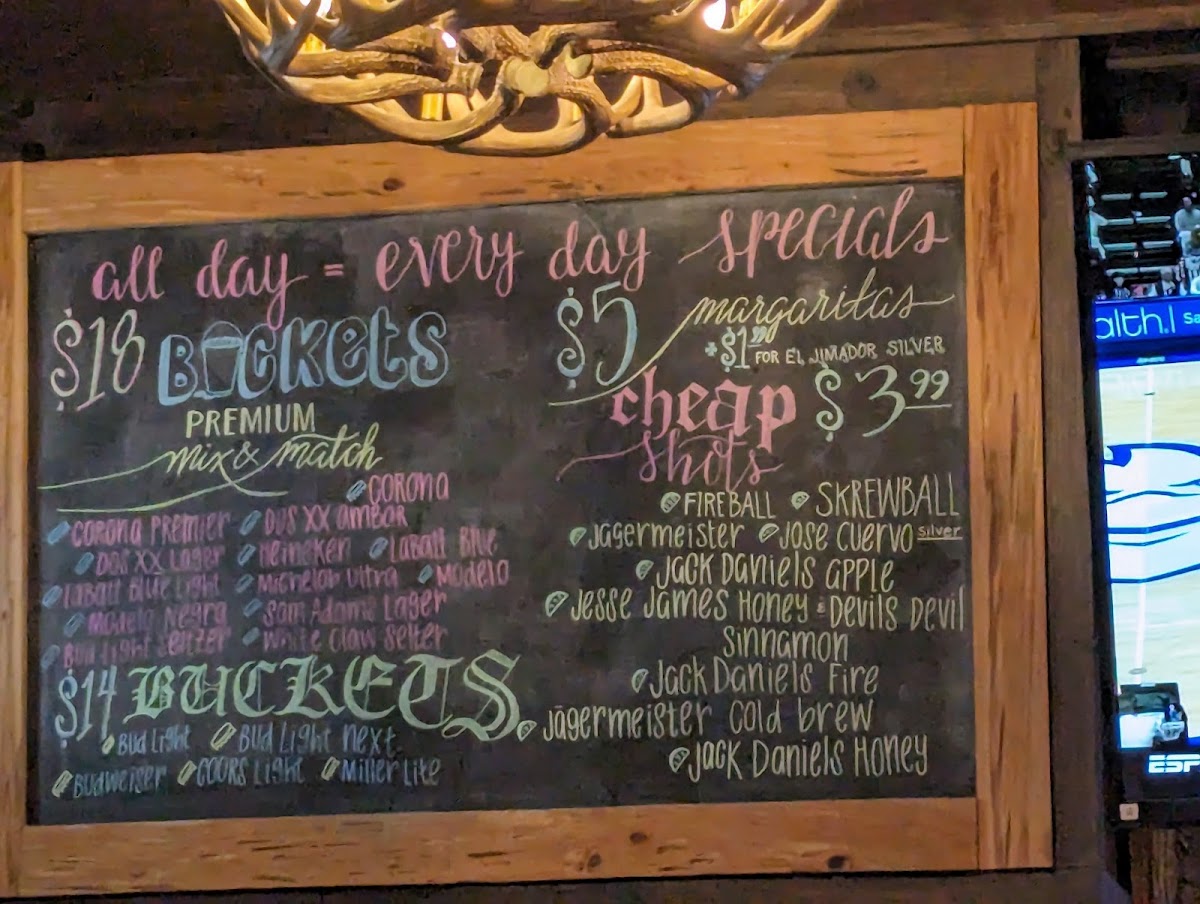 all day = every day specials
$18 BUCKETS
PREMIUM
mix & match
CORONA
CORONA PREMIER DOS XX AMBAR
DOS XX LAGER Heineken LABATT BLUE
LABATT BLUE LIGHT MICHELOB ULTRA MODELO
MODELO NEGRA SAM ADAMS LAGER
BUD LIGHT SELTZER WHITE CLAW SELTER
$14 BUCKETS
BUD LIGHT BUD LIGHT NEXT
BUDWEISER COORS LIGHT MILLER LITE
$5 margaritas
+$1.00 FOR EL JIMADOR SILVER
cheap $3.99
shots
FIREBALL SKREWBALL
JÄGERMEISTER JOSE CUERVO SILVER
JACK DANIELS APPLE
JESSE JAMES HONEY & DEVILS DEVIL
SINNAMON
JACK DANIELS FIRE
JÄGERMEISTER COLD BREW
JACK DANIELS HONEY
alth.
Sa
ESP